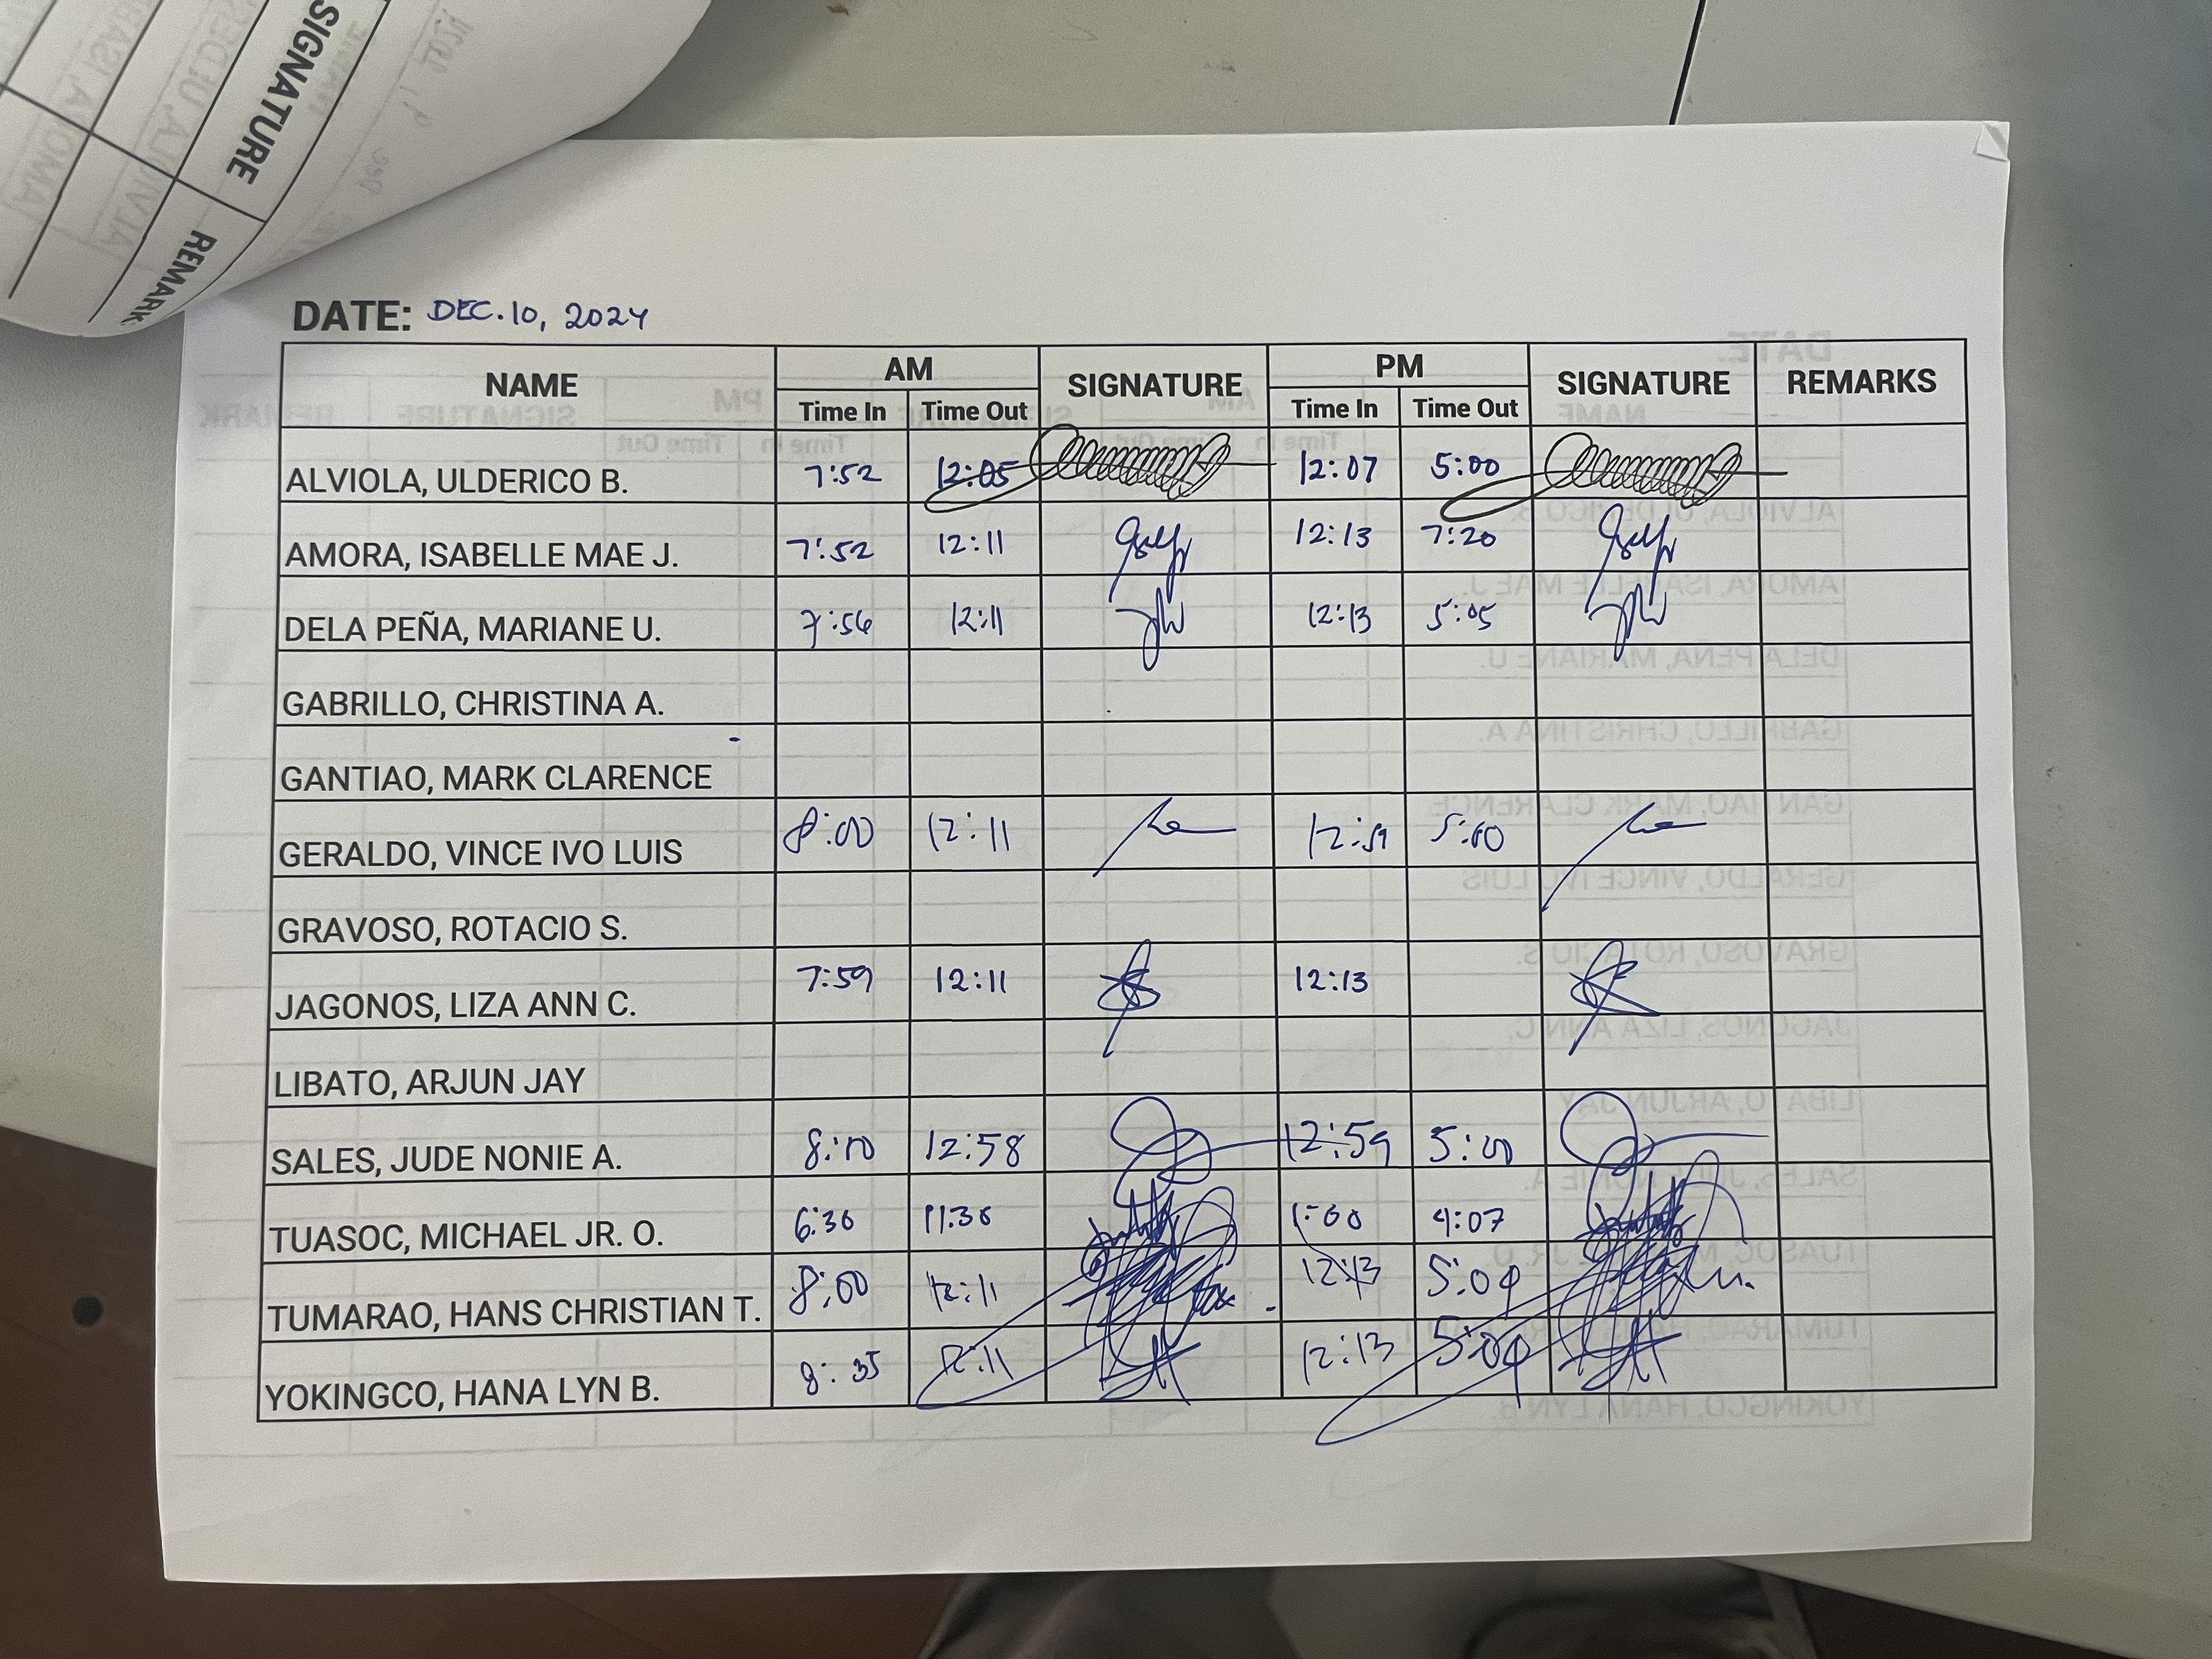 SIGNATURE
REMARK
DATE: DEC. 10, 2024
NAME AM SIGNATURE PM SIGNATURE REMARKS
Time In Time Out Time In Time Out
ALVIOLA, ULDERICO B. 7:52 12:05 12:07 5:00
AMORA, ISABELLE MAE J. 7:52 12:11 12:13 7:20
DELA PEÑA, MARIANE U. 7:56 12:11 12:13 5:05
GABRILLO, CHRISTINA A.
GANTIAO, MARK CLARENCE
GERALDO, VINCE IVO LUIS 8:00 12:11 12:59 5:00
GRAVOSO, ROTACIO S.
JAGONOS, LIZA ANN C. 7:59 12:11 12:13
LIBATO, ARJUN JAY
SALES, JUDE NONIE A. 8:10 12:58 12:59 5:00
TUASOC, MICHAEL JR. O. 6:30 11:30 1:00 4:07
TUMARAO, HANS CHRISTIAN T. 8:00 12:11 12:13 5:09
YOKINGCO, HANA LYN B. 8:35 12:11 12:13 5:09